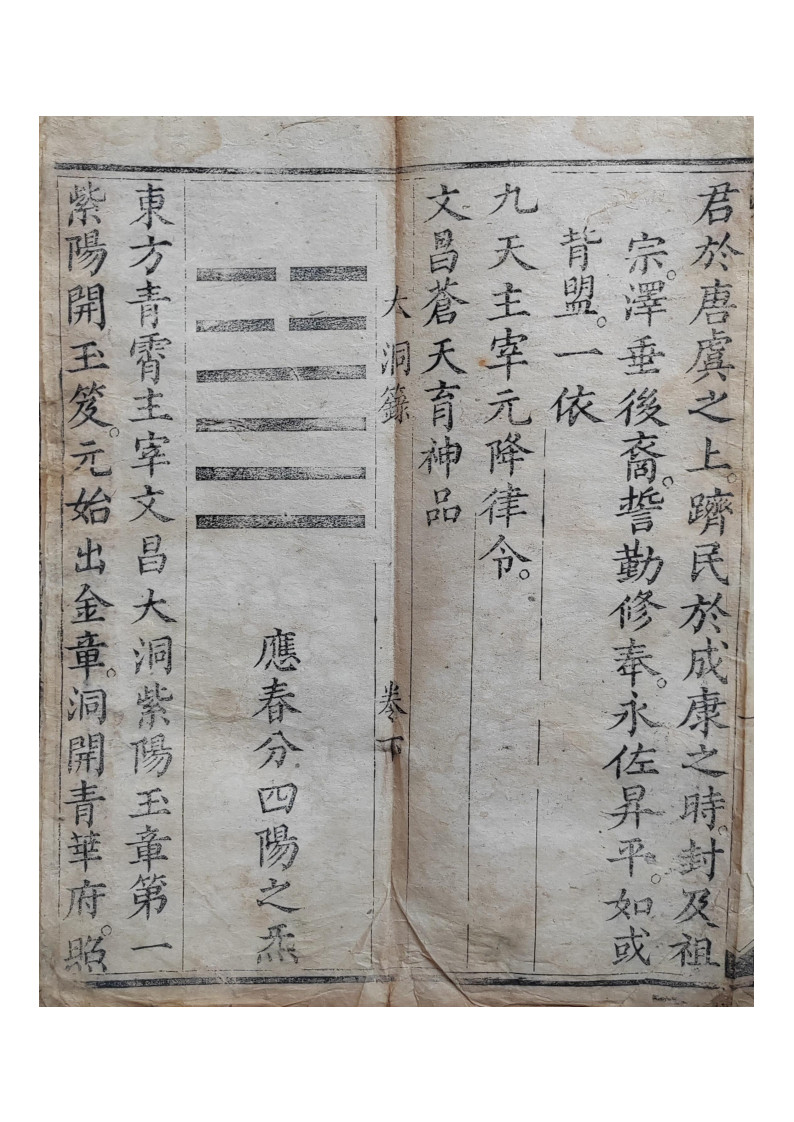 君於唐虞之上。躋民於成康之時。封及祖
宗。澤垂後裔。誓勤修奉。永佐昇平。如或
背盟。一依
九天主宰元降律令。
文昌蒼天育神品
大洞籙 卷下
應春分四陽之炁
東方青霄主宰文昌大洞紫陽玉章第一
紫陽開玉笈。元始出金章。洞開青華府。照